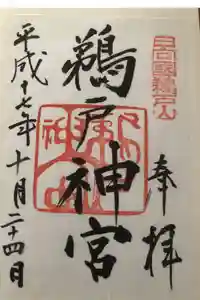 奉拝
日向國鵜戸山
鵜戸神宮
平成十七年十月二十四日